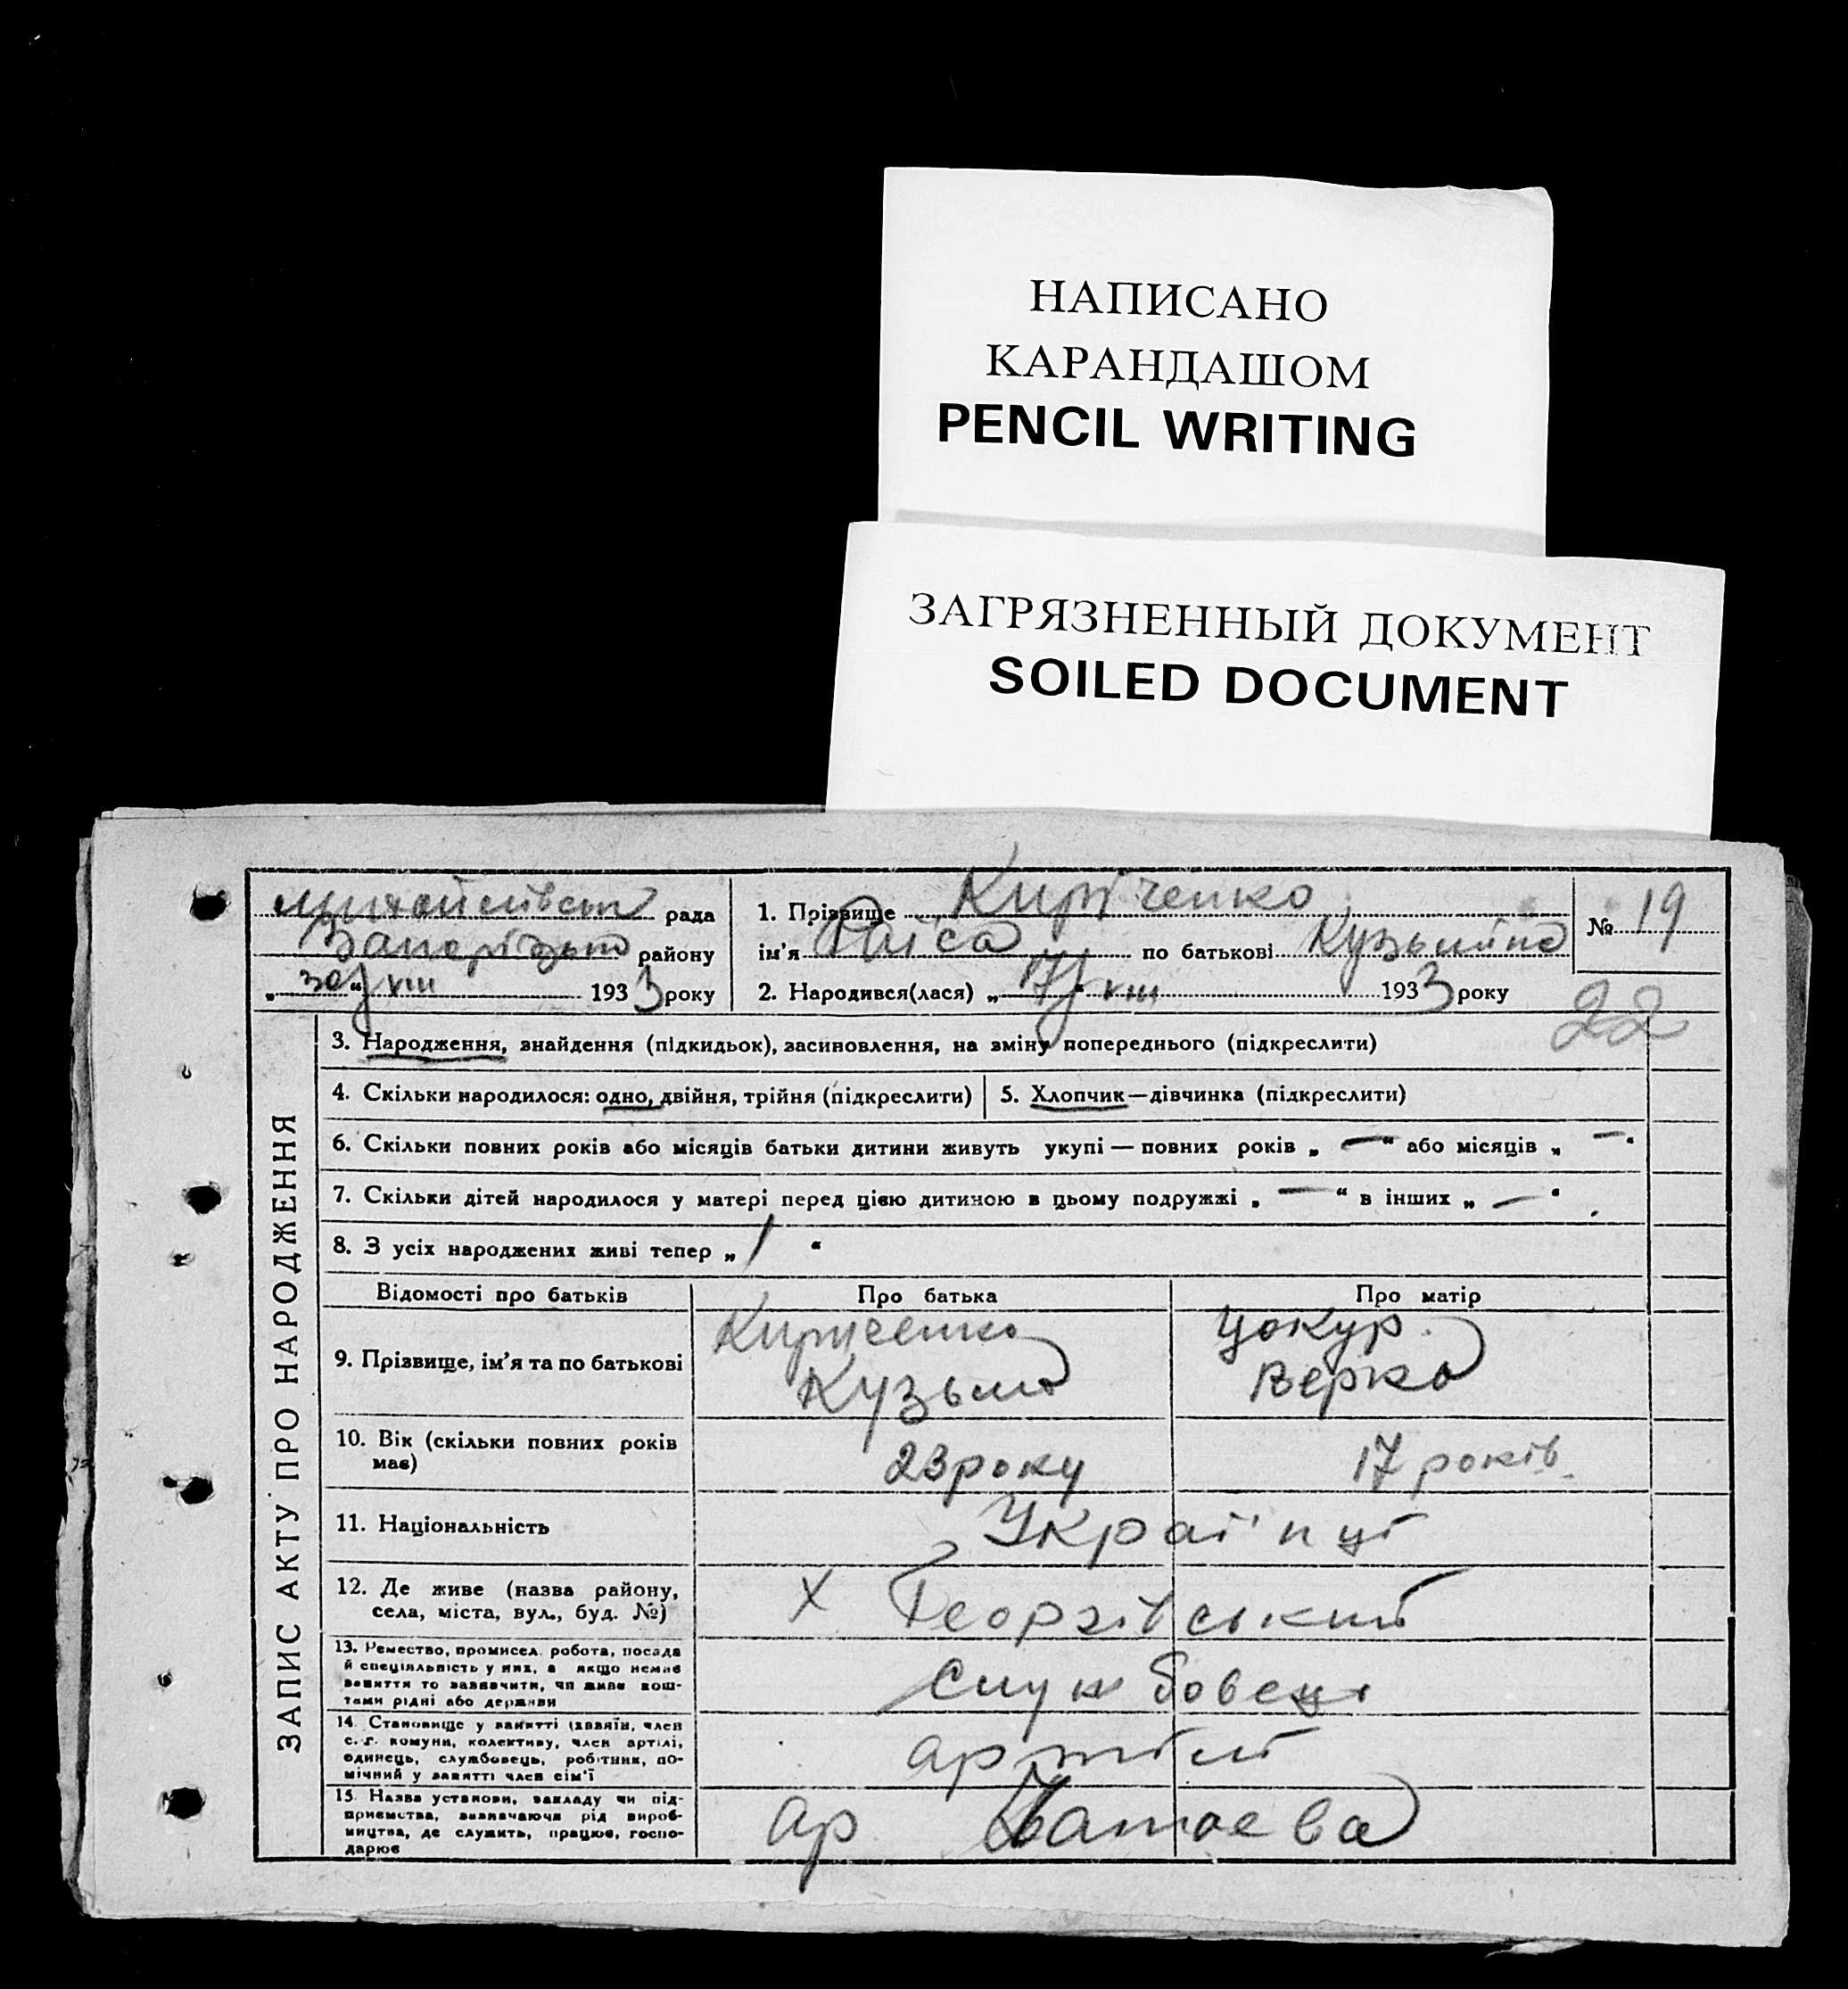 НАПИСАНО
КАРАНДАШОМ
PENCIL WRITING
ЗАГРЯЗНЕННЫЙ ДОКУМЕНТ
SOILED DOCUMENT
ЗАПИС АКТУ ПРО НАРОДЖЕННЯ
рада
району
„30“ VIII 1933 року
1. Прізвище Киріченко
ім'я Раїса по батькові Кузьмівна
2. Народився(лася) „17“ VIII 1933 року
№ 19
22
3. Народження, знайдення (підкидьок), засиновлення, на зміну попереднього (підкреслити)
4. Скільки народилося: одно, двійня, трійня (підкреслити)
5. Хлопчик—дівчинка (підкреслити)
6. Скільки повних років або місяців батьки дитини живуть укупі — повних років „ — “ або місяців „ — “
7. Скільки дітей народилося у матері перед цією дитиною в цьому подружжі „ — “ в інших „ — “.
8. З усіх народжених живі тепер „ 1 “
Відомості про батьків Про батька Про матір
9. Прізвище, ім'я та по батькові
Киріченко
Кузьма
Цокур
Верка
10. Вік (скільки повних років має)
23 року
17 років
11. Національність
Українці
12. Де живе (назва району,
села, міста, вул., буд. №)
х Георгівський
13. Ремество, промисел, робота, посада
й спеціяльність у них, а якщо немає
заняття то зазначити, чи живе кош-
тами рідні або держави
Службовець
14. Становище у занятті (хазяїн, член
с.-г. комуни, колективу, член артілі,
одинець, службовець, робітник, по-
мічний у занятті член сім'ї
артілі
15. Назва установи, закладу чи під-
приємства, зазначаючи рід вироб-
ництва, де служить, працює, госпо-
дарює
ар